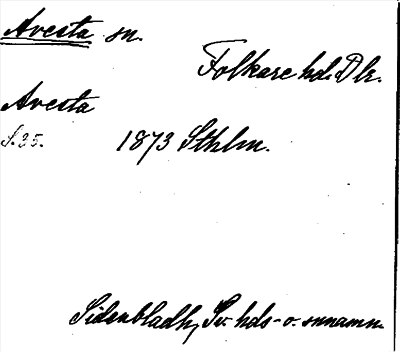 Avesta sn.
Folkare hd. Dlr.
Avesta
S. 35. 1873 Sthlm.
Sidenbladh, Sv. hds- o. snnamn.